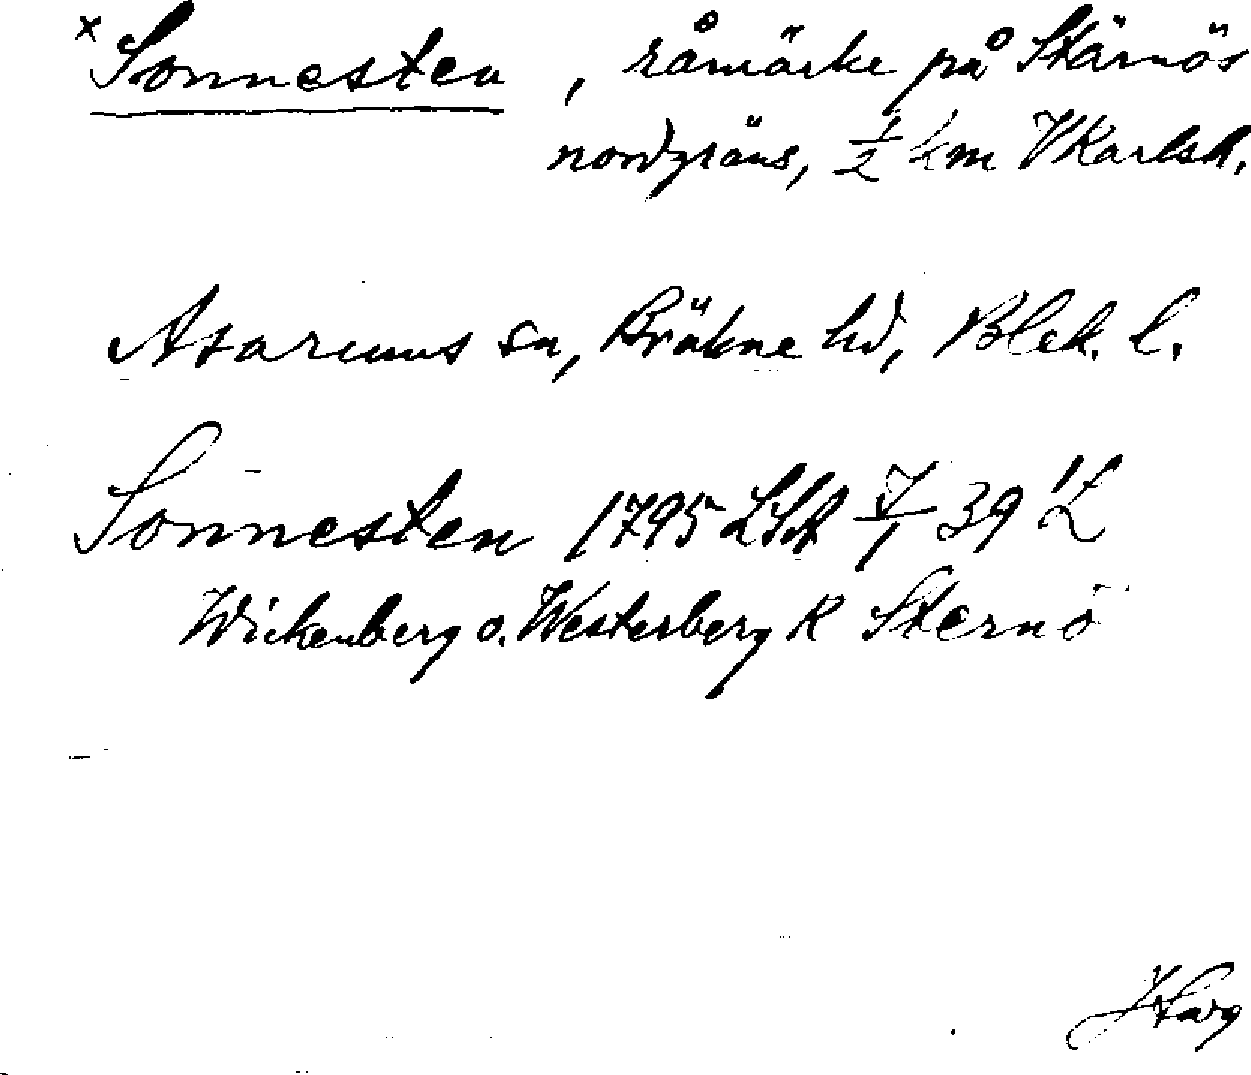 x Sonnesten, råmärke på Stärnös
nordgräns, ½ km V Karlsh.
Asarums sn, Bräkne hd, Blek. l.
Sonnesten 1795 LSA 7/1 39 1/2
Wickenberg o. Westerberg R Sternö